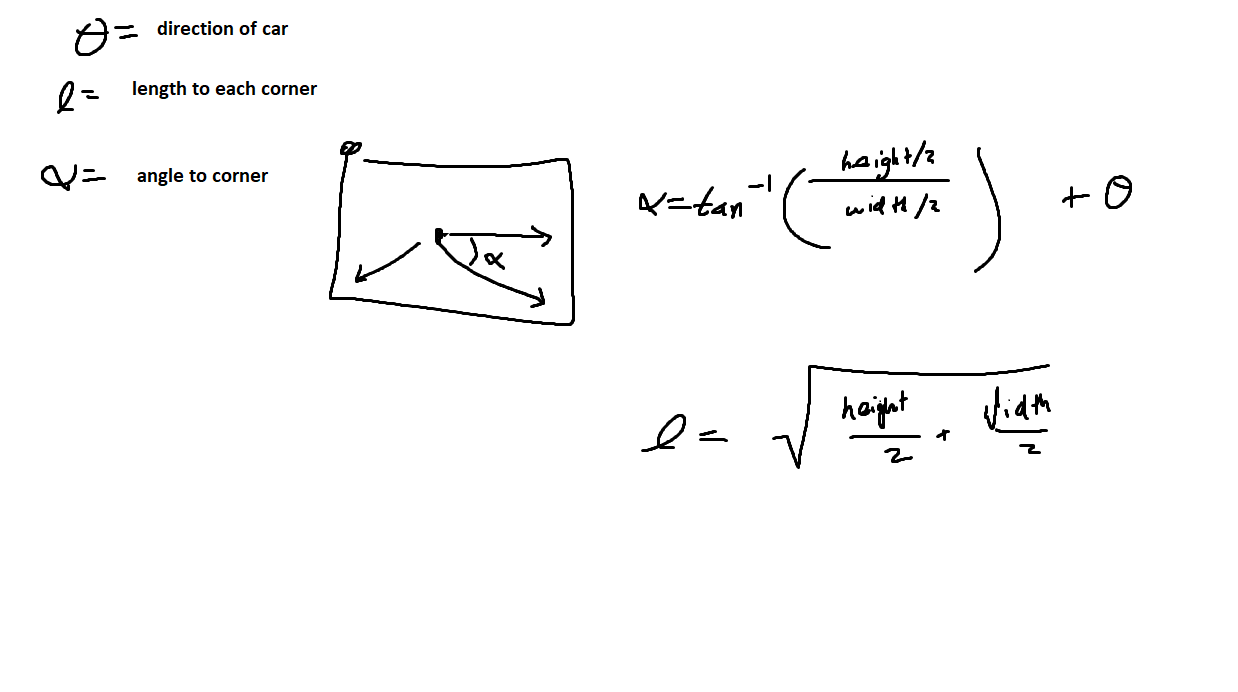 θ = direction of car
l = length to each corner
α = angle to corner
α
α = tan⁻¹ ( height/2 / width/2 ) + θ
l = √( height/2 + width/2 )